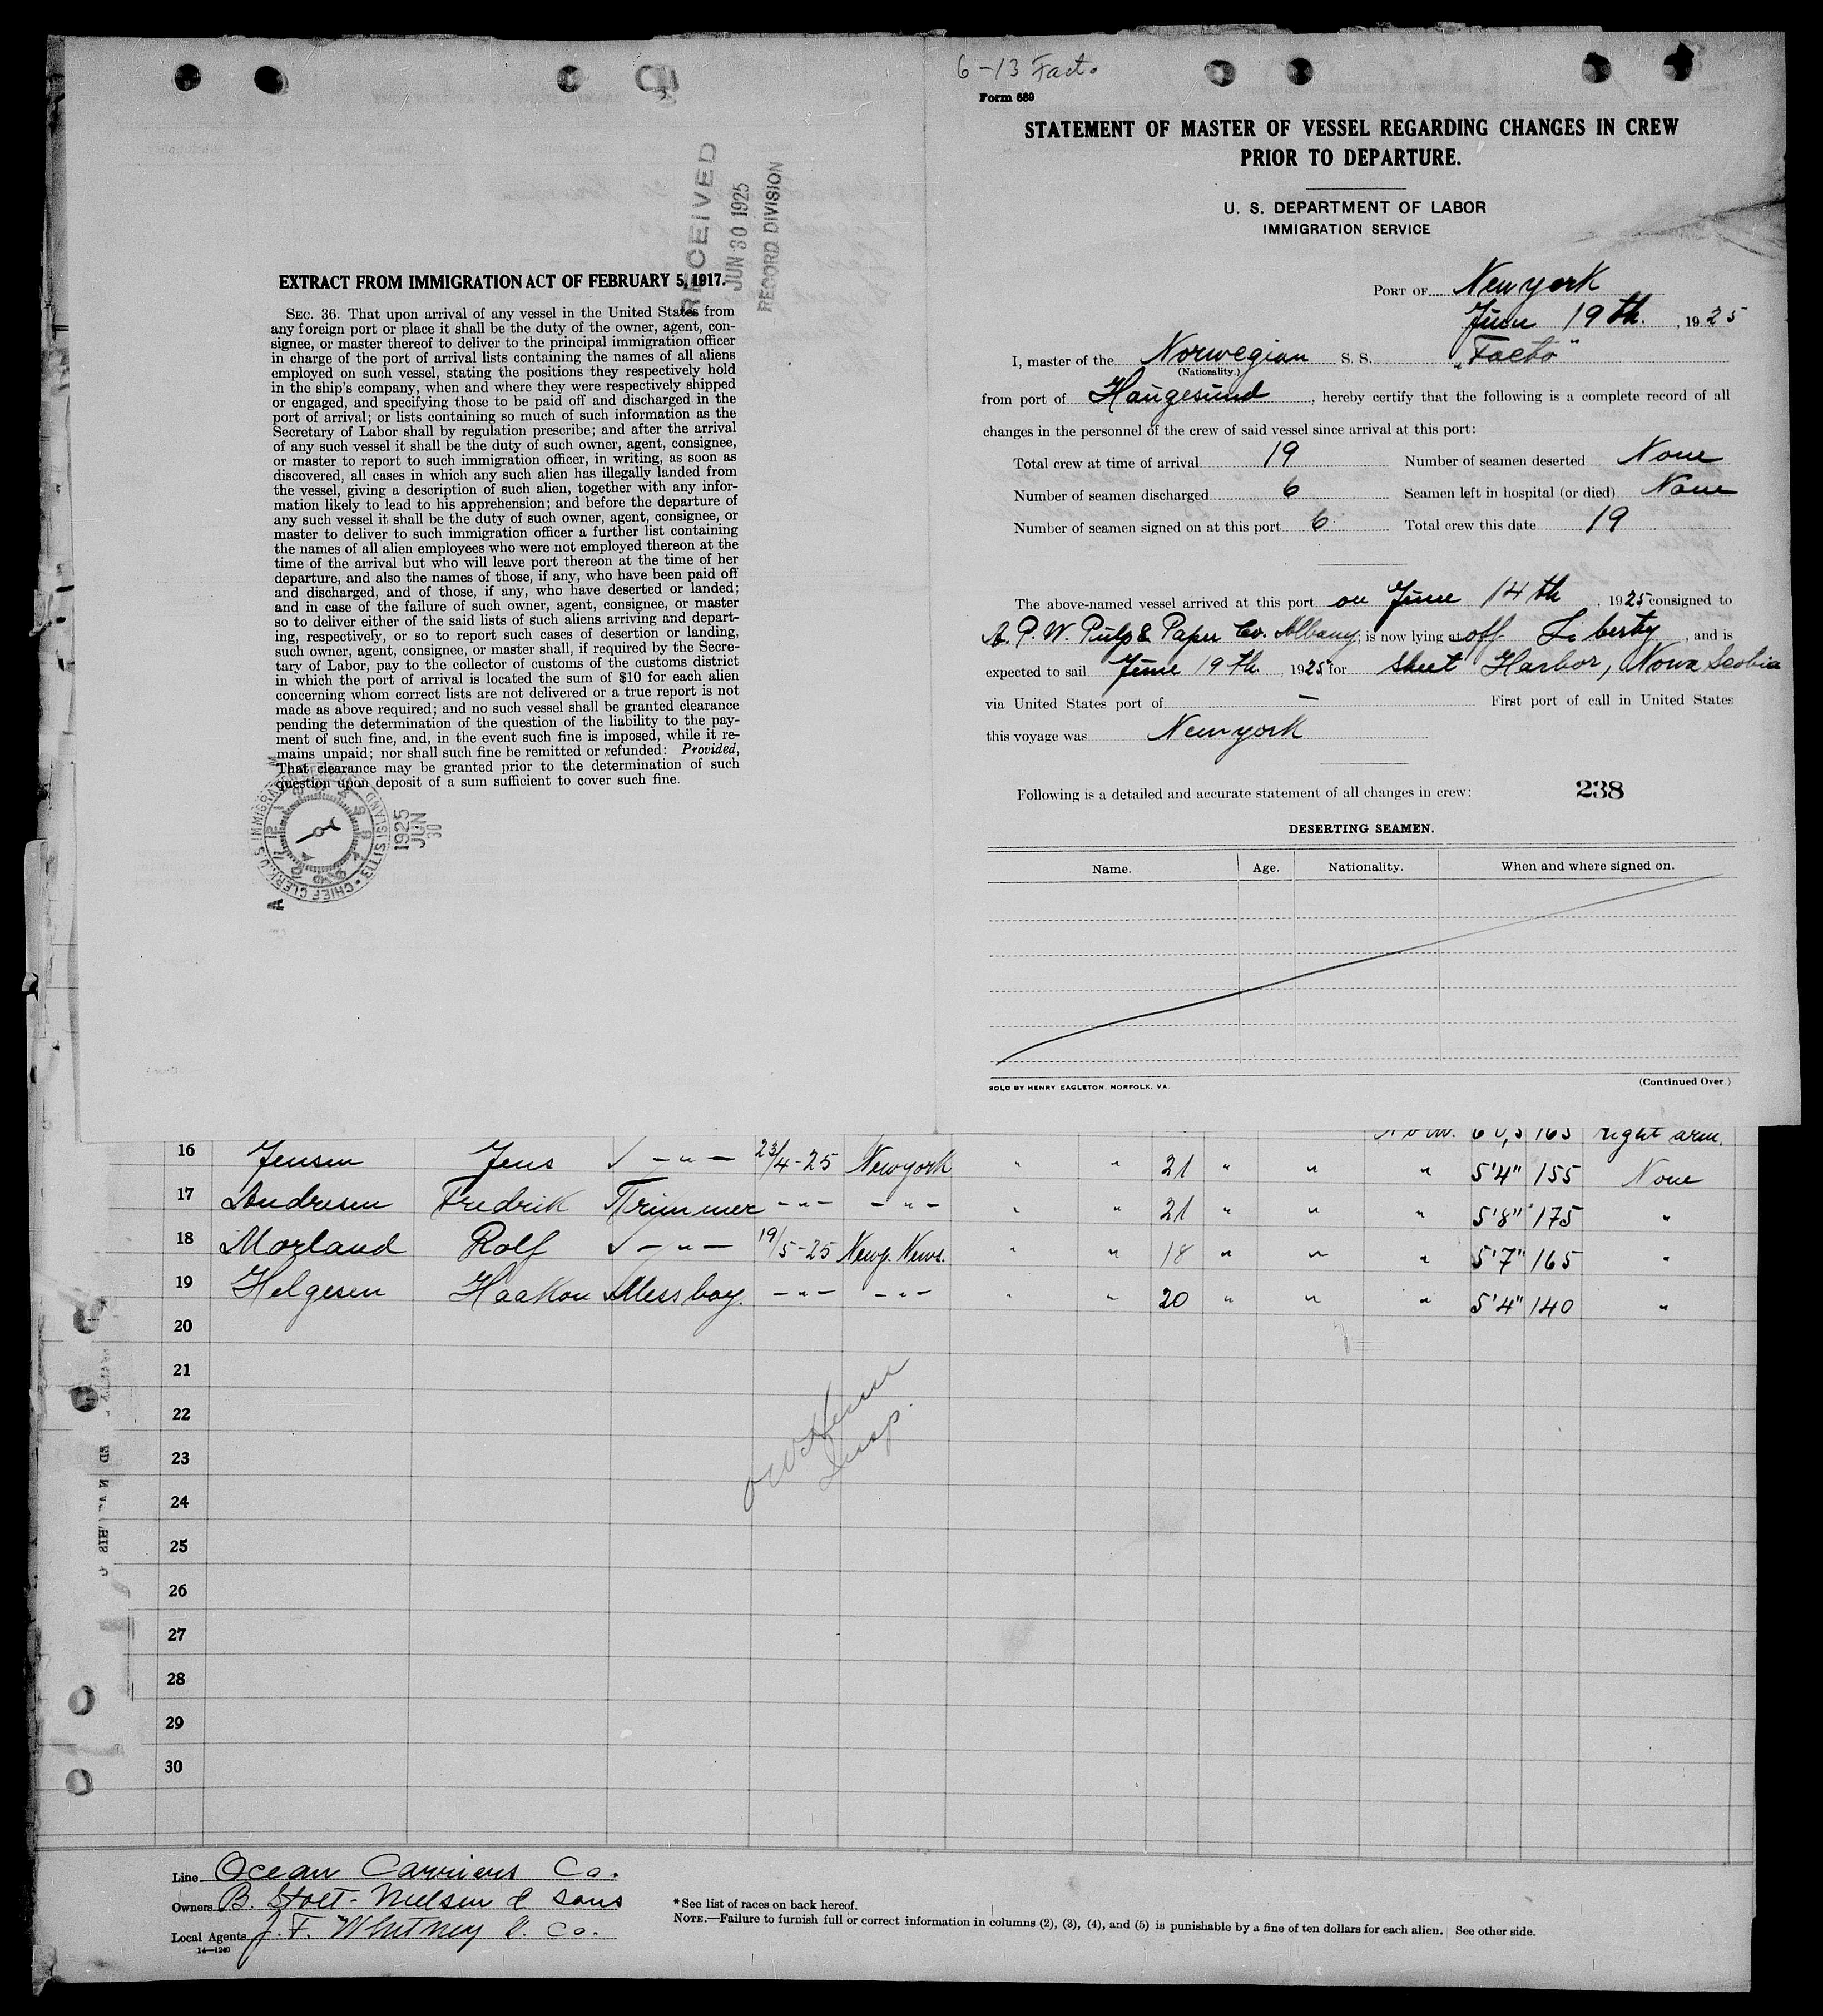 6-13 Facto
Form 689
STATEMENT OF MASTER OF VESSEL REGARDING CHANGES IN CREW
PRIOR TO DEPARTURE.
U. S. DEPARTMENT OF LABOR
IMMIGRATION SERVICE
PORT OF Newyork
June 19th, 1925
I, master of the Norwegian S. S. "Facto"
(Nationality.)
from port of Haugesund, hereby certify that the following is a complete record of all
changes in the personnel of the crew of said vessel since arrival at this port:
Total crew at time of arrival 19 Number of seamen deserted None
Number of seamen discharged 6 Seamen left in hospital (or died) None
Number of seamen signed on at this port 6 Total crew this date 19
The above-named vessel arrived at this port on June 14th, 1925 consigned to
A. P. W. Pulp & Paper Co. Albany, is now lying at off Liberty, and is
expected to sail June 19th, 1925 for Sheet Harbor, Nova Scotia
via United States port of — First port of call in United States
this voyage was Newyork
Following is a detailed and accurate statement of all changes in crew: 238
DESERTING SEAMEN.
Name. Age. Nationality. When and where signed on.
SOLD BY HENRY EAGLETON, NORFOLK, VA.
(Continued Over.)
RECEIVED
JUN 30 1925
RECORD DIVISION
EXTRACT FROM IMMIGRATION ACT OF FEBRUARY 5, 1917.
SEC. 36. That upon arrival of any vessel in the United States from
any foreign port or place it shall be the duty of the owner, agent, con-
signee, or master thereof to deliver to the principal immigration officer
in charge of the port of arrival lists containing the names of all aliens
employed on such vessel, stating the positions they respectively hold
in the ship's company, when and where they were respectively shipped
or engaged, and specifying those to be paid off and discharged in the
port of arrival; or lists containing so much of such information as the
Secretary of Labor shall by regulation prescribe; and after the arrival
of any such vessel it shall be the duty of such owner, agent, consignee,
or master to report to such immigration officer, in writing, as soon as
discovered, all cases in which any such alien has illegally landed from
the vessel, giving a description of such alien, together with any infor-
mation likely to lead to his apprehension; and before the departure of
any such vessel it shall be the duty of such owner, agent, consignee, or
master to deliver to such immigration officer a further list containing
the names of all alien employees who were not employed thereon at the
time of the arrival but who will leave port thereon at the time of her
departure, and also the names of those, if any, who have been paid off
and discharged, and of those, if any, who have deserted or landed;
and in case of the failure of such owner, agent, consignee, or master
so to deliver either of the said lists of such aliens arriving and depart-
ing, respectively, or so to report such cases of desertion or landing,
such owner, agent, consignee, or master shall, if required by the Secre-
tary of Labor, pay to the collector of customs of the customs district
in which the port of arrival is located the sum of $10 for each alien
concerning whom correct lists are not delivered or a true report is not
made as above required; and no such vessel shall be granted clearance
pending the determination of the question of the liability to the pay-
ment of such fine, and, in the event such fine is imposed, while it re-
mains unpaid; nor shall such fine be remitted or refunded: Provided,
That clearance may be granted prior to the determination of such
question upon deposit of a sum sufficient to cover such fine.
CHIEF CLERK, U.S. IMMIGRA
ELLIS ISLAND
1925
JUN
30
165 right arm.
16 Jensen Jens ✓ — " — 23/4-25 Newyork " " 21 " " " 5'4" 155 None
17 Andresen Fredrik Trimmer - " - - " - " " 21 " " " 5'8" 175 "
18 Morland Rolf ✓ — " — 19/5-25 Newp. News. " " 18 " " " 5'7" 165 "
19 Helgesen Haakon Messboy. - " - - " - " " 20 " " " 5'4" 140 "
20
21
22
23
24
25
26
27
28
29
30
Insp.
Line Ocean Carriers Co.
Owners B. Stolt-Nielsen & Sons
Local Agents J. F. Whitney & Co.
14—1240
*See list of races on back hereof.
NOTE.—Failure to furnish full or correct information in columns (2), (3), (4), and (5) is punishable by a fine of ten dollars for each alien. See other side.